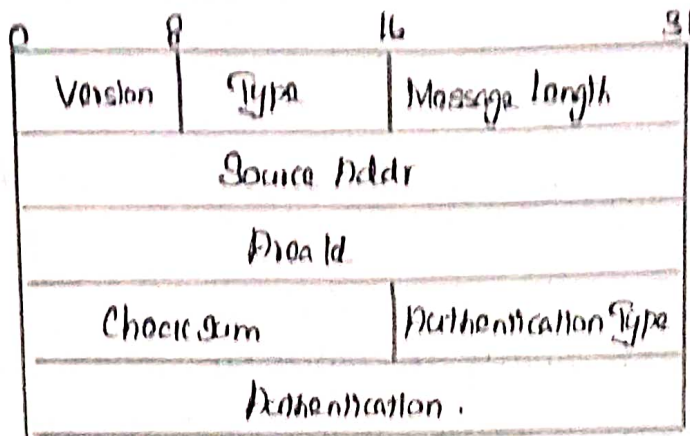 0 8 16 31
Version Type Message length
Source Addr
Area Id
Checksum Authentication Type
Authentication.